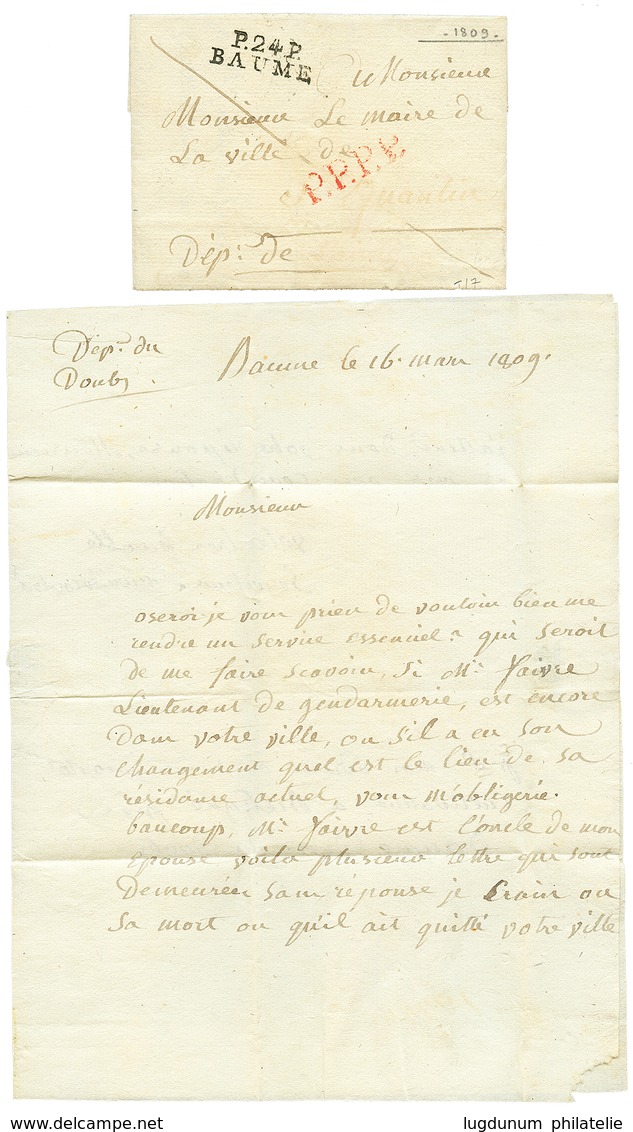 - 1809 -
P.24.P.
BAUME
Monsieur
Monsieur Le maire de
La ville de
P.P.P.P.
Quantin
Dép.t de
T/7
Dép.t du
Doubs
Baume le 16. mars 1809.
Monsieur
oseroi-je vous prier de vouloir bien me
rendre un service essenciel? qui seroit
de me faire scavoir, si Mr. faivre
Lieutenant de gendarmerie, est encore
dans votre ville, ou s'il a eu son
changement quel est le lieu de sa
résidance actuel, vous m'obligerié.
baucoup, Mr. faivre est l'oncle de mon
Epouse voila plusieur lettre qui sont
Demeurées sans réponse je Crains ou
Sa mort ou qu'il ait quitté votre ville
www.delcampe.net
lugdunum philatelie